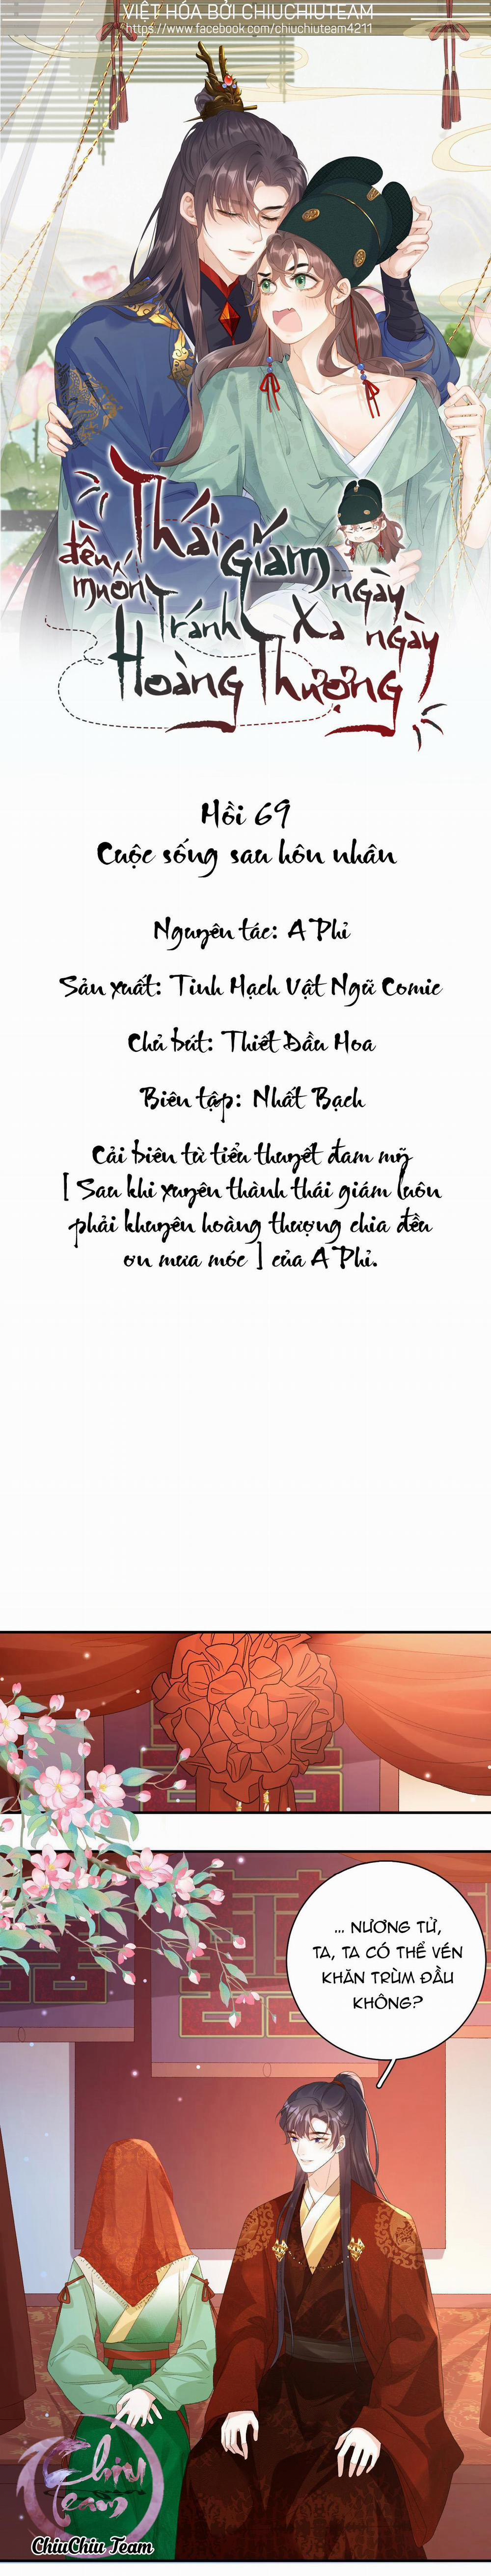 VIỆT HÓA BỞI CHIUCHIUTEAM
https://www.facebook.com/chiuchiuteam4211
Thái Giám ngày
đêm muốn Tránh Xa ngày
Hoàng Thượng
Hồi 69
Cuộc sống sau hôn nhân
Nguyên tác: A Phỉ
Sản xuất: Tinh Hạch Vật Ngữ Comic
Chủ bút: Thiết Đầu Hoa
Biên tập: Nhất Bạch
Cải biên từ tiểu thuyết đam mỹ
[ Sau khi xuyên thành thái giám luôn
phải khuyên hoàng thượng chia đều
ơn mưa móc ] của A Phỉ.
... NƯƠNG TỬ,
TA, TA CÓ THỂ VÉN
KHĂN TRÙM ĐẦU
KHÔNG?
Chiu
Team
ChiuChiu Team